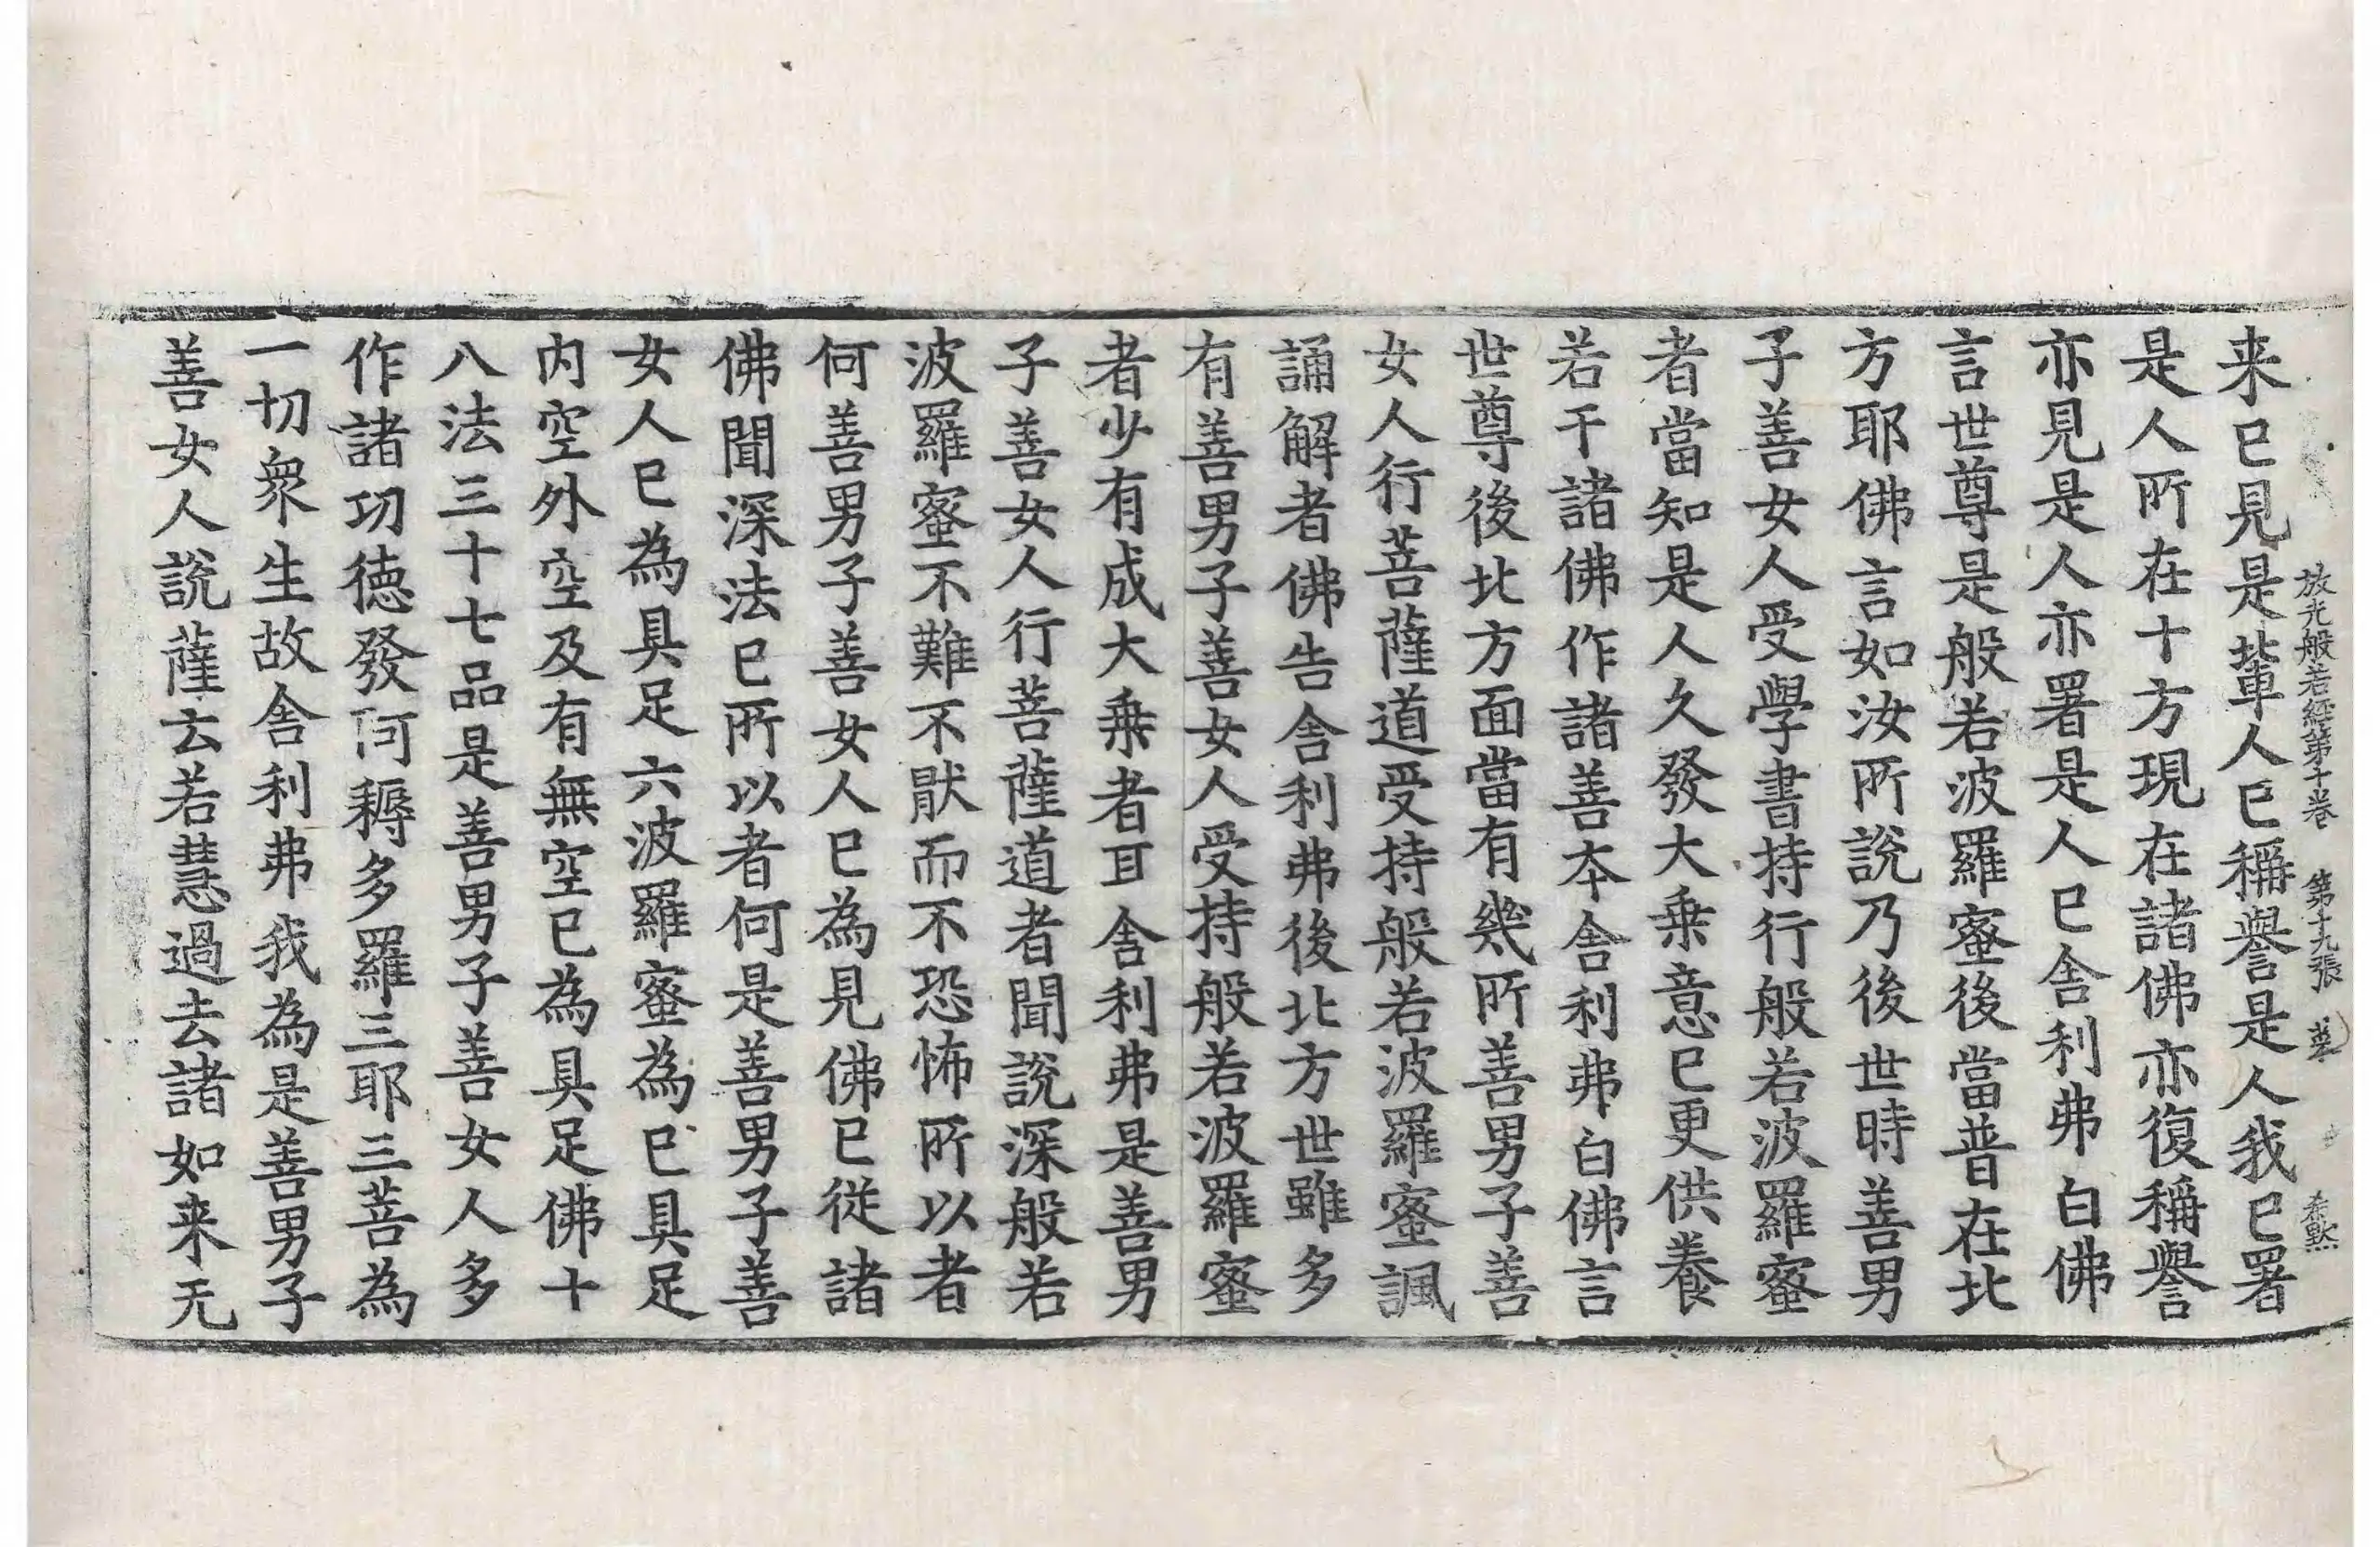 放光般若經第十卷 第十九張
来已見是輩人已稱譽是人我已署
是人所在十方現在諸佛亦復稱譽
亦見是人亦署是人已舍利弗白佛
言世尊是般若波羅蜜後當普在北
方耶佛言如汝所說乃後世時善男
子善女人受學書持行般若波羅蜜
者當知是人久發大乗意已更供養
若干諸佛作諸善本舍利弗白佛言
世尊後北方面當有幾所善男子善
女人行菩薩道受持般若波羅蜜諷
誦解者佛告舍利弗後北方世雖多
有善男子善女人受持般若波羅蜜
者少有成大乗者耳舍利弗是善男
子善女人行菩薩道者聞說深般若
波羅蜜不難不猒而不恐怖所以者
何善男子善女人已為見佛已從諸
佛聞深法已所以者何是善男子善
女人已為具足六波羅蜜為已具足
内空外空及有無空已為具足佛十
八法三十七品是善男子善女人多
作諸功德發阿耨多羅三耶三菩為
一切衆生故舍利弗我為是善男子
善女人說薩云若慧過去諸如来无